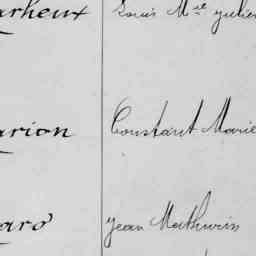 arheux Louis Mie julien
arion Constant Marie
aro jean Mathurin